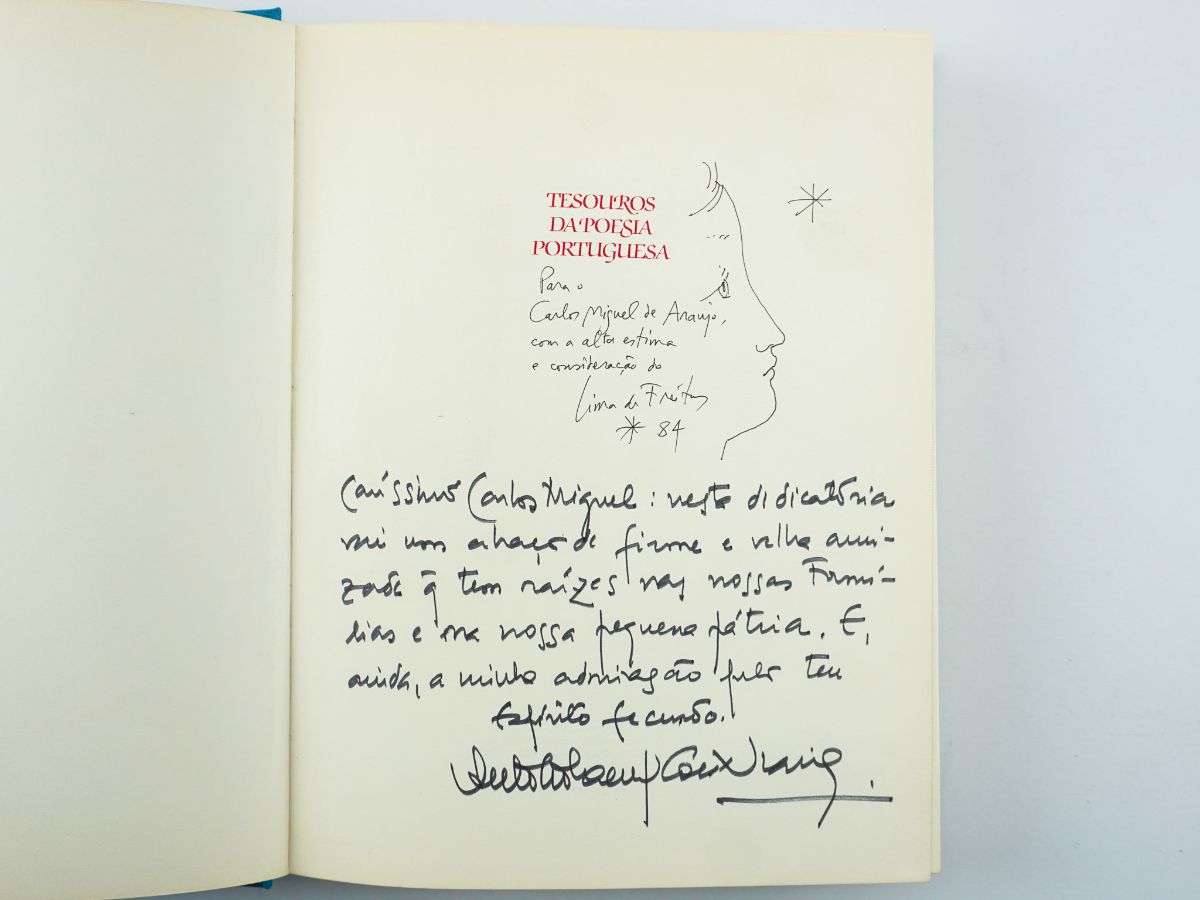 TESOUROS
DA POESIA
PORTUGUESA
Para o
Carlos Miguel de Araujo,
com a alta estima
e consideração do
Lima de Freitas
84
Caríssimo Carlos Miguel: nesta didicatória
vai um abraço de firme e velha ami-
zade q̃ tem raízes nas nossas Famí-
lias e na nossa pequena pátria. E,
ainda, a minha admiração pelo teu
espírito fecundo.